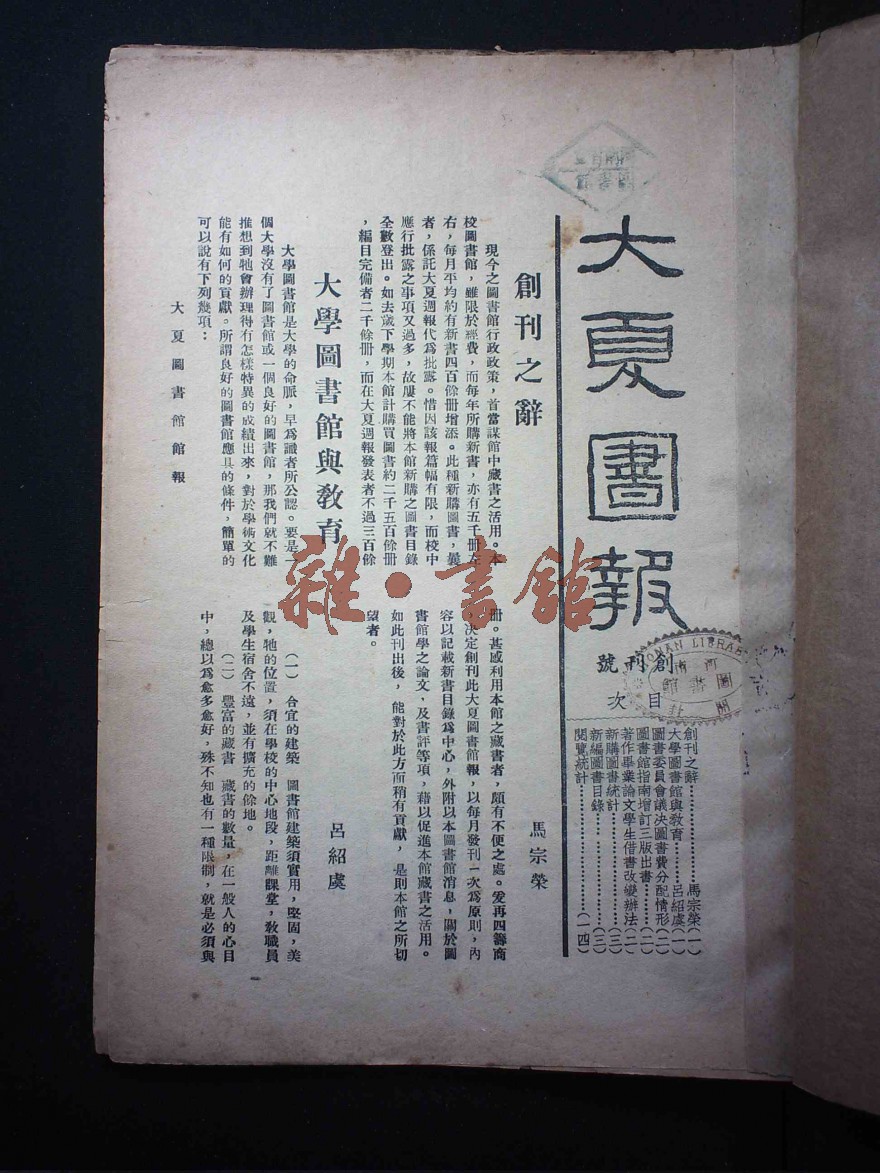 大夏圕報
創刊號
目次
創刊之辭……………馬宗榮(一)
大學圖書館與教育………呂紹虞(一)
圖書委員會議決圖書費分配情形(二)
圖書館指南增訂三版出書………(二)
著作畢業論文學生借書改變辦法(二)
新購圖書統計……………(三)
新編圖書目錄……………(三)
閱覽統計………………(一四)
創刊之辭
馬宗榮
現今之圖書館行政政策，首當謀館中藏書之活用。本
校圖書館，雖限於經費，而每年所購新書，亦有五千冊左
右，每月平均約有新書四百餘冊增添。此種新購圖書，曩
者，係託大夏週報代爲批露。惜因該報篇幅有限，而校中
應行批露之事項又過多，故屢不能將本館新購之圖書目錄
全數登出。如去歲下學期本館計購買圖書約二千五百餘冊
，編目完備者二千餘冊，而在大夏週報發表者不過三百餘
冊。甚感利用本館之藏書者，頗有不便之處。爰再四籌商
決定創刊此大夏圖書館報，以每月發刊一次爲原則，內
容以記載新書目錄爲中心，外附以本圖書館消息，關於圖
書館學之論文，及書評等項，藉以促進本館藏書之活用。
如此刊出後，能對於此方面稍有貢獻，是則本館之所切
望者。
大學圖書館與教育
呂紹虞
大學圖書館是大學的命脈，早爲識者所公認。要是一
個大學沒有了圖書館或一個良好的圖書館，那我們就不難
推想到牠會辦理得有怎樣特異的成績出來，對於學術文化
能有如何的貢獻。所謂良好的圖書館應具的條件，簡單的
可以說有下列幾項：
(一)　合宜的建築　圖書館建築須實用，堅固，美
觀，牠的位置，須在學校的中心地段，距離課堂，教職員
及學生宿舍不遠，並有擴充的餘地。
(二)　豐富的藏書　藏書的數量，在一般人的心目
中，總以爲愈多愈好，殊不知也有一種限制，就是必須與
大夏圖書館館報
雜·書館
HONAN LIBRARY
河南圖書館